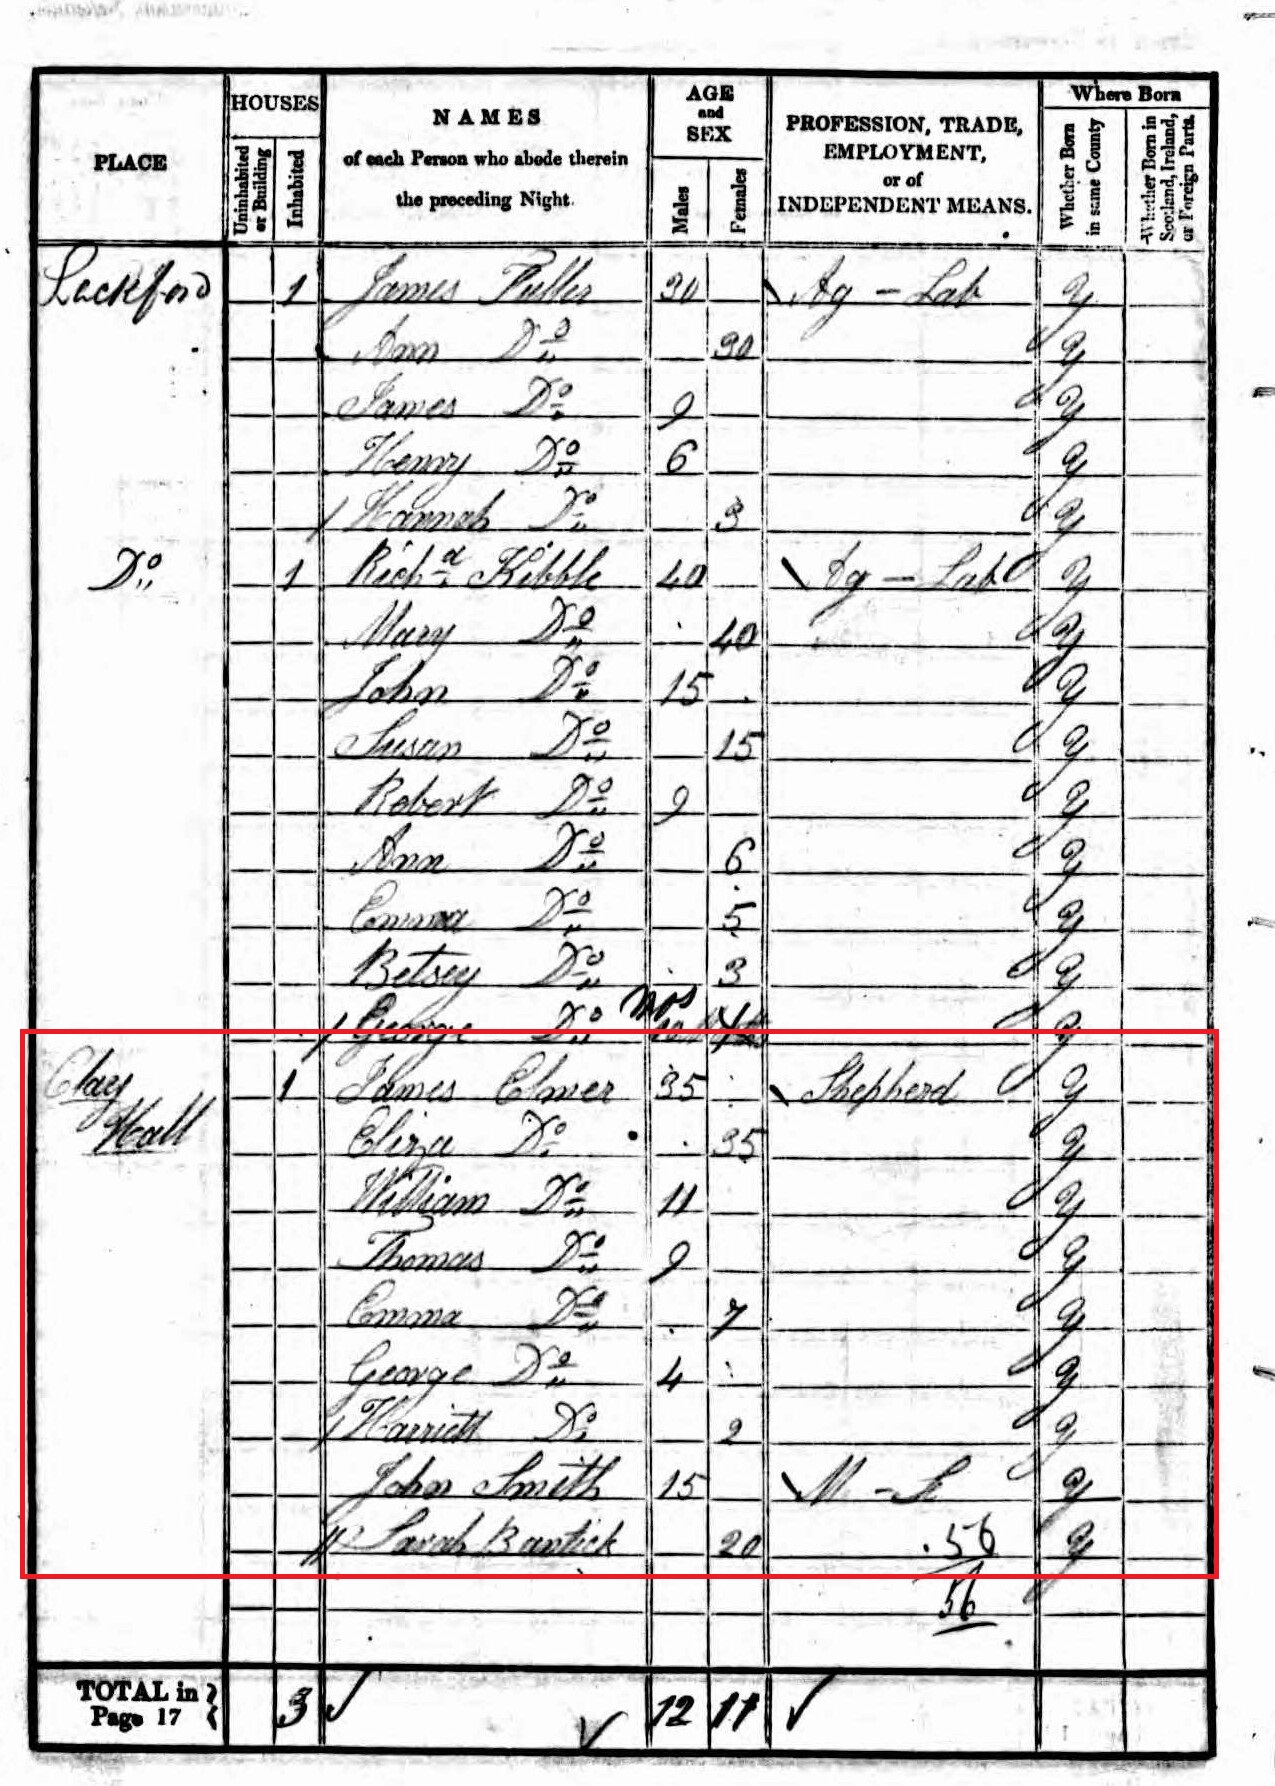 PLACE
HOUSES
Uninhabited or Building
Inhabited
NAMES
of each Person who abode therein
the preceding Night.
AGE
and
SEX
Males
Females
PROFESSION, TRADE,
EMPLOYMENT,
or of
INDEPENDENT MEANS.
Where Born
Whether Born in same County
Whether Born in Scotland, Ireland, or Foreign Parts.
Lackford 1 James Fuller 30 Ag - Lab Y
Ann Do 30 Y
James Do 9 Y
Henry Do 6 Y
Hannah Do 3 Y
Do 1 Richd Kibble 40 Ag - Lab Y
Mary Do 40 Y
John Do 15 Y
Susan Do 15 Y
Robert Do 9 Y
Ann Do 6 Y
Emma Do 5 Y
Betsey Do 3 Y
George Do mos Y
Clay Hall 1 James Elmer 35 Shepherd Y
Eliza Do 35 Y
William Do 11 Y
Thomas Do 9 Y
Emma Do 7 Y
George Do 4 Y
Harriett Do 2 Y
John Smith 15 M - S Y
Sarah Bantick 20 56 Y
56
TOTAL in Page 17 3 12 11